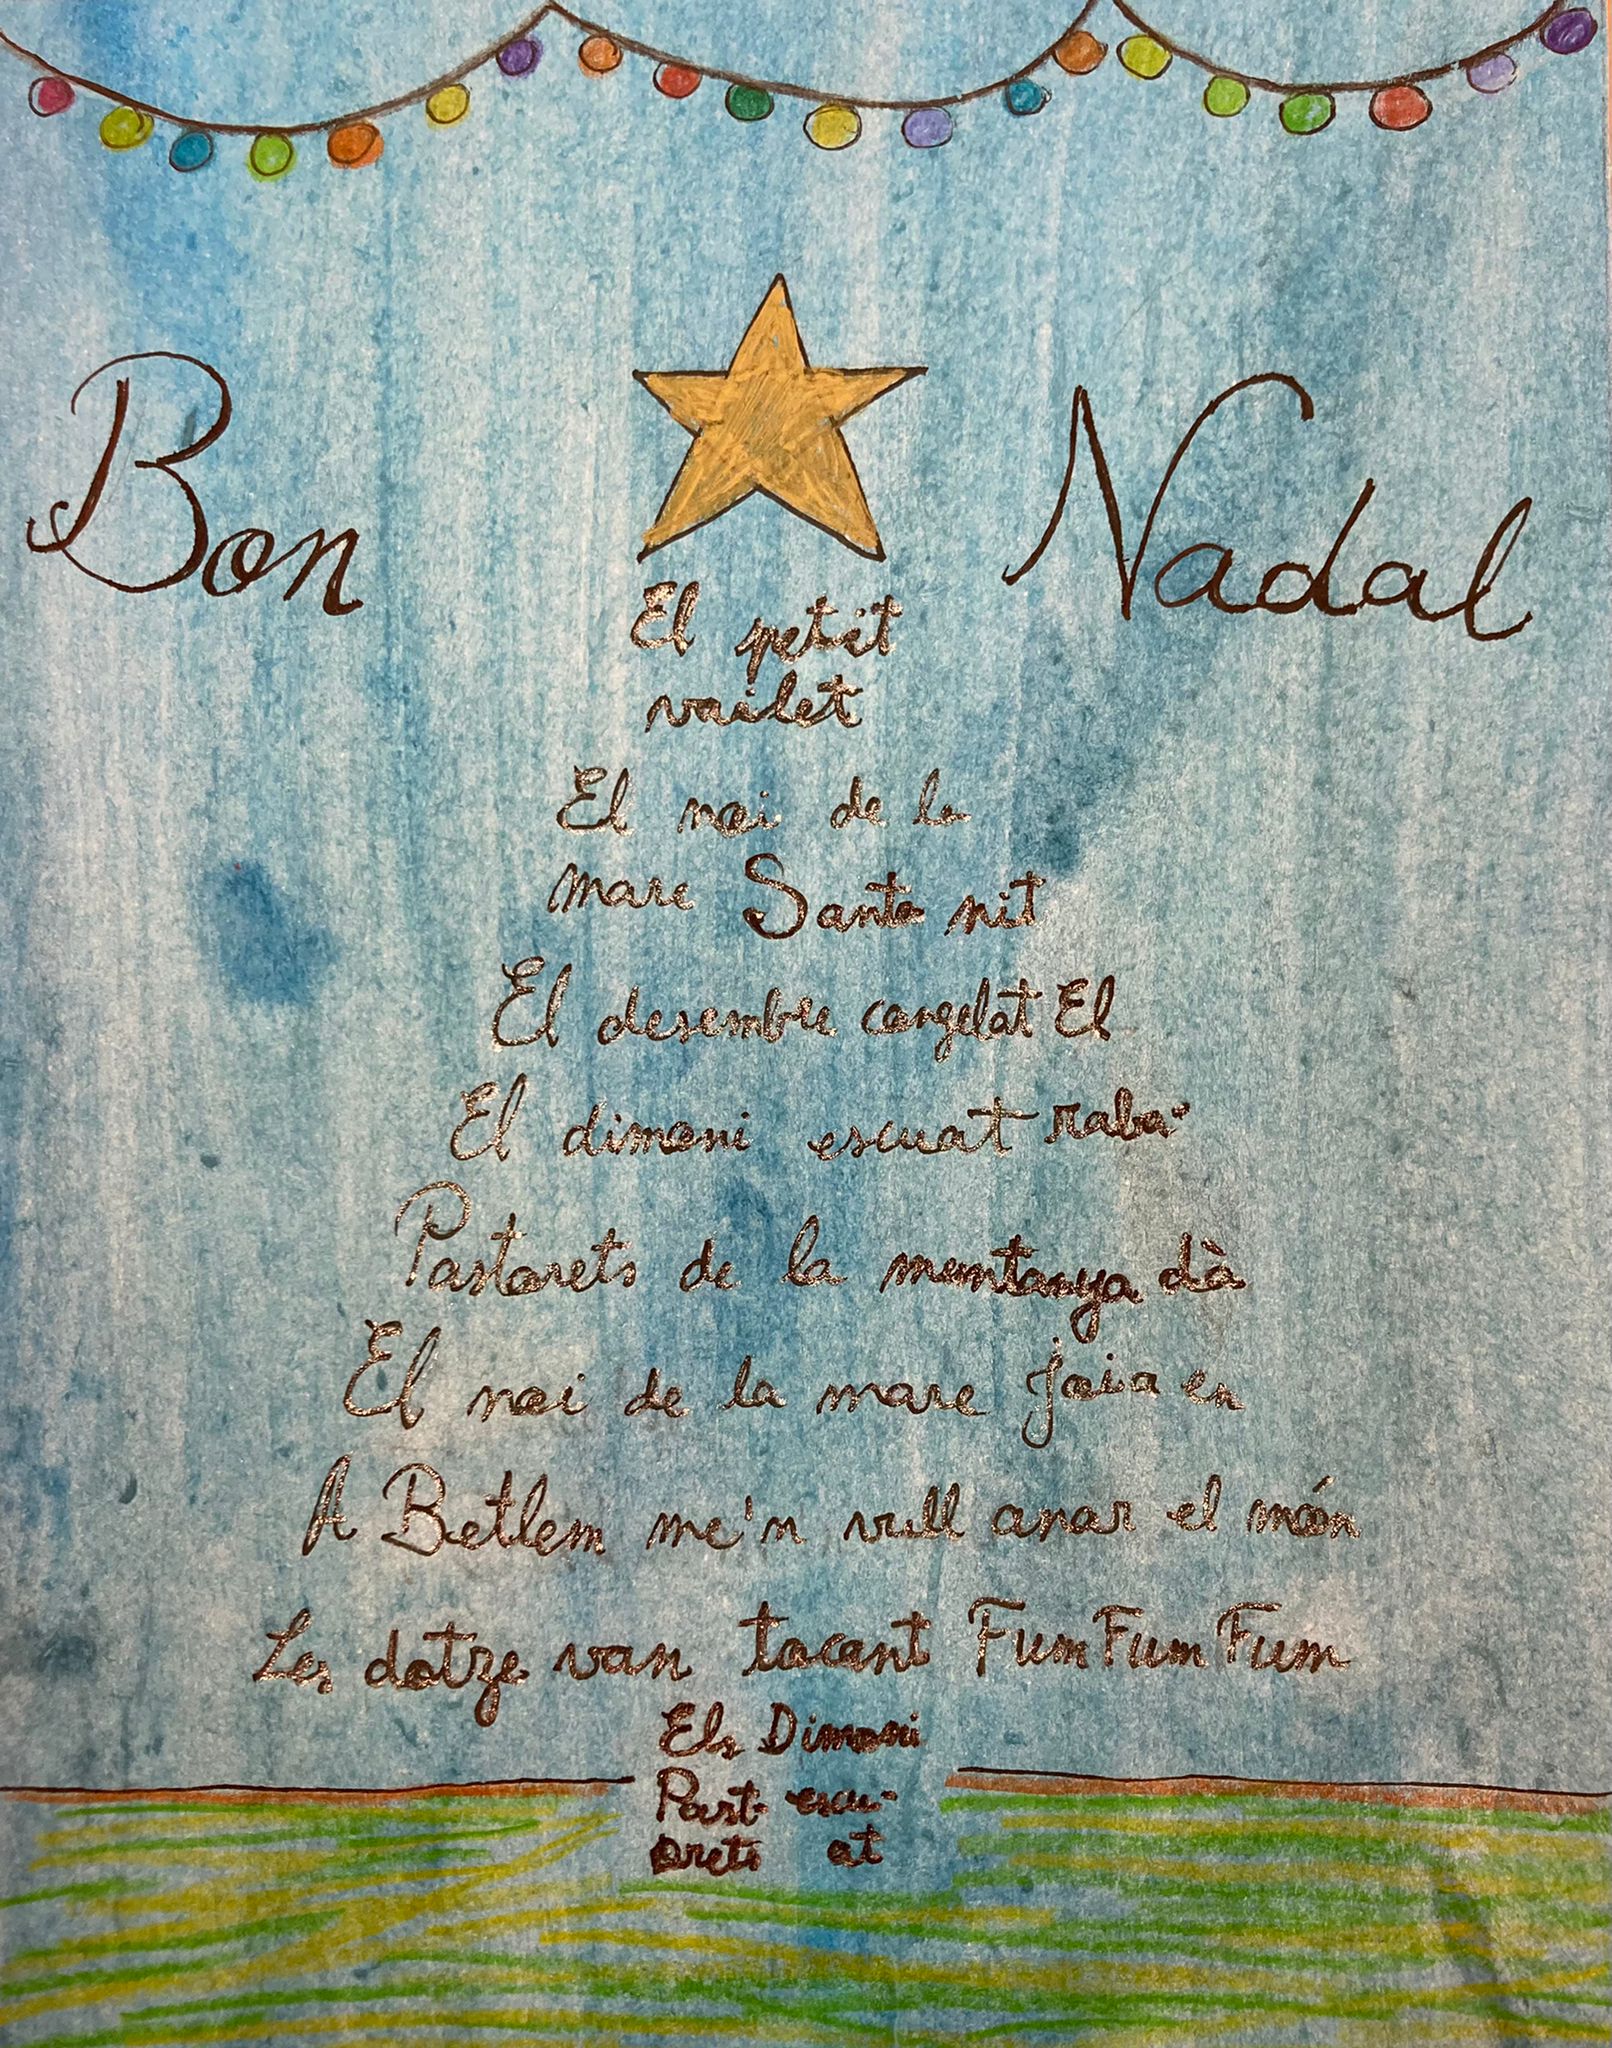 Bon Nadal
El petit
vailet
El noi de la
mare Santa nit
El desembre congelat El
El dimoni escuat raba-
Pastorets de la muntanya dà
El noi de la mare Joia en
A Betlem me'n vull anar el món
Les dotze van tocant Fum Fum Fum
Els Dimoni
Past- escu-
orets at